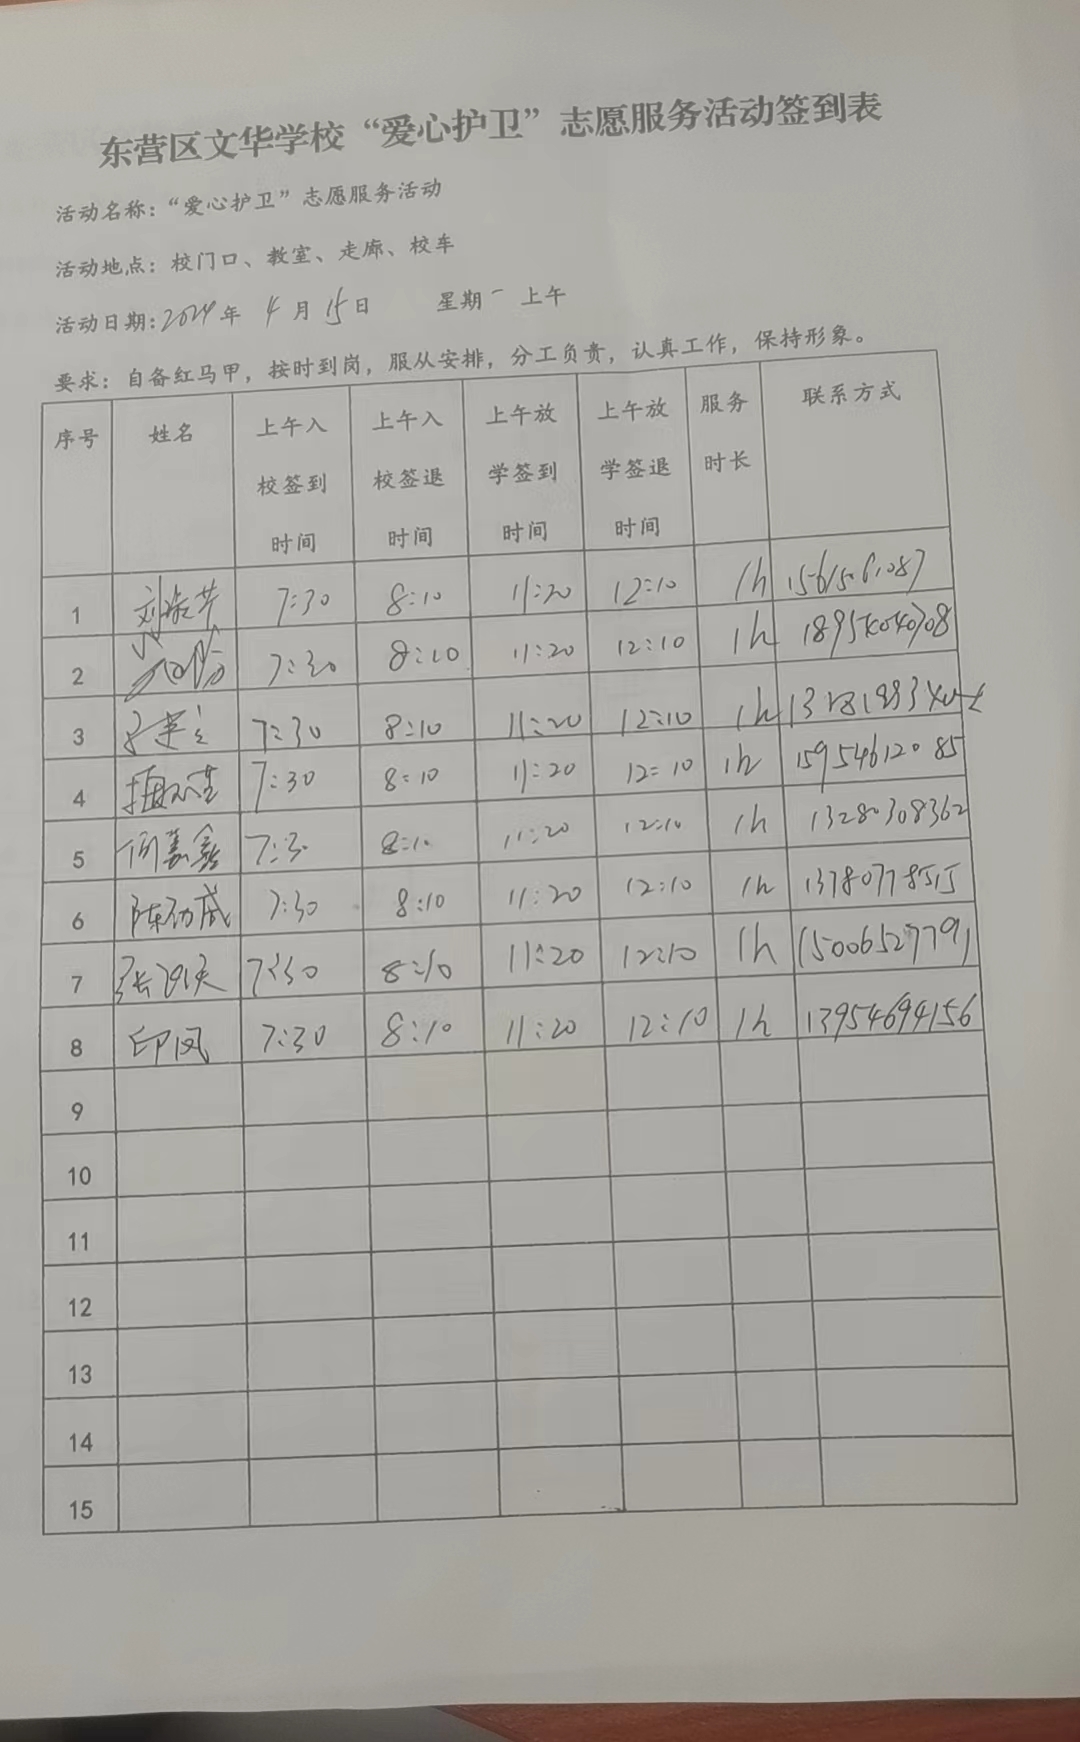 东营区文华学校“爱心护卫”志愿服务活动签到表
活动名称：“爱心护卫”志愿服务活动
活动地点：校门口、教室、走廊、校车
活动日期：2024年 4月15日 星期一 上午
要求：自备红马甲，按时到岗，服从安排，分工负责，认真工作，保持形象。
序号 姓名 上午入校签到时间 上午入校签退时间 上午放学签到时间 上午放学签退时间 服务时长 联系方式
1 7:30 8:10 11:20 12:10 1h 15615061087
2 7:30 8:10 11:20 12:10 1h
3 7:30 8:10 11:20 12:10 1h
4 7:30 8:10 11:20 12:10 1h 15954612085
5 7:30 8:10 11:20 12:10 1h 13280308362
6 7:30 8:10 11:20 12:10 1h 13780778515
7 7:30 8:10 11:20 12:10 1h 15006527791
8 印凤 7:30 8:10 11:20 12:10 1h 13954694156
9
10
11
12
13
14
15